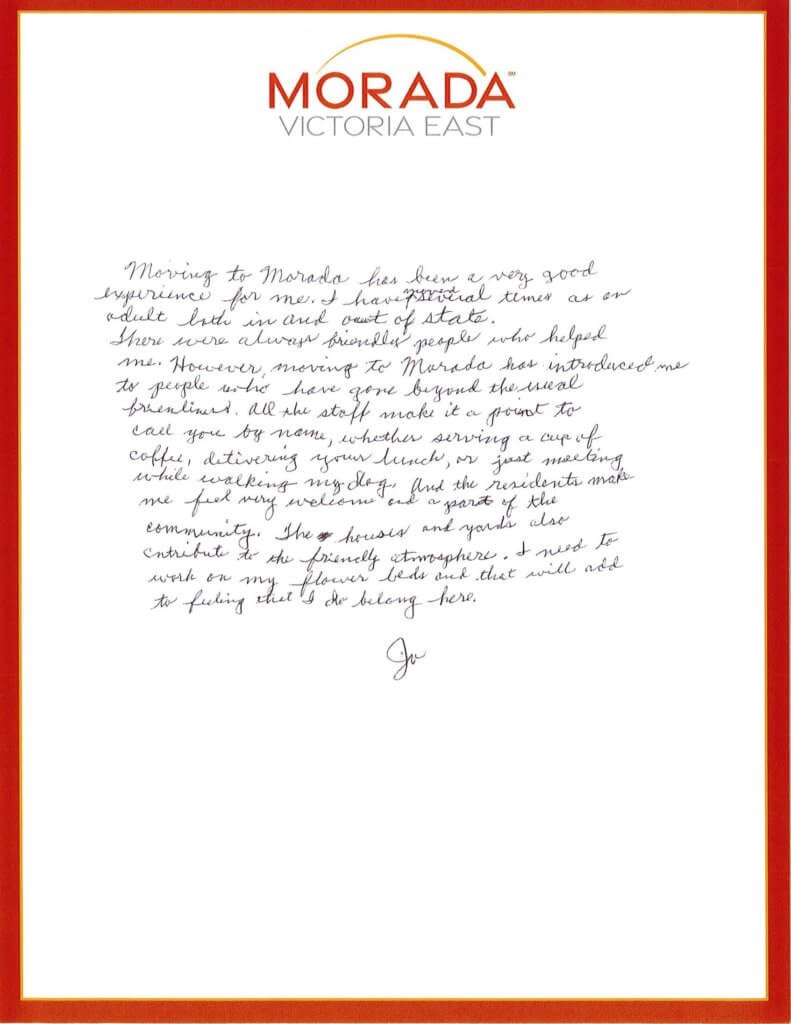 MORADA℠
VICTORIA EAST
Moving to Morada has been a very good
experience for me. I have moved several times as an
adult both in and out of state.
There were always friendly people who helped
me. However, moving to Morada has introduced me
to people who have gone beyond the usual
frienliness. All the staff make it a point to
call you by name, whether serving a cup of
coffee, delivering your lunch, or just meeting
while walking my dog. And the residents make
me feel very welcome and a part of the
community. The houses and yards also
contribute to the friendly atmosphere. I need to
work on my flower beds and that will add
to feeling that I do belong here.
Jo